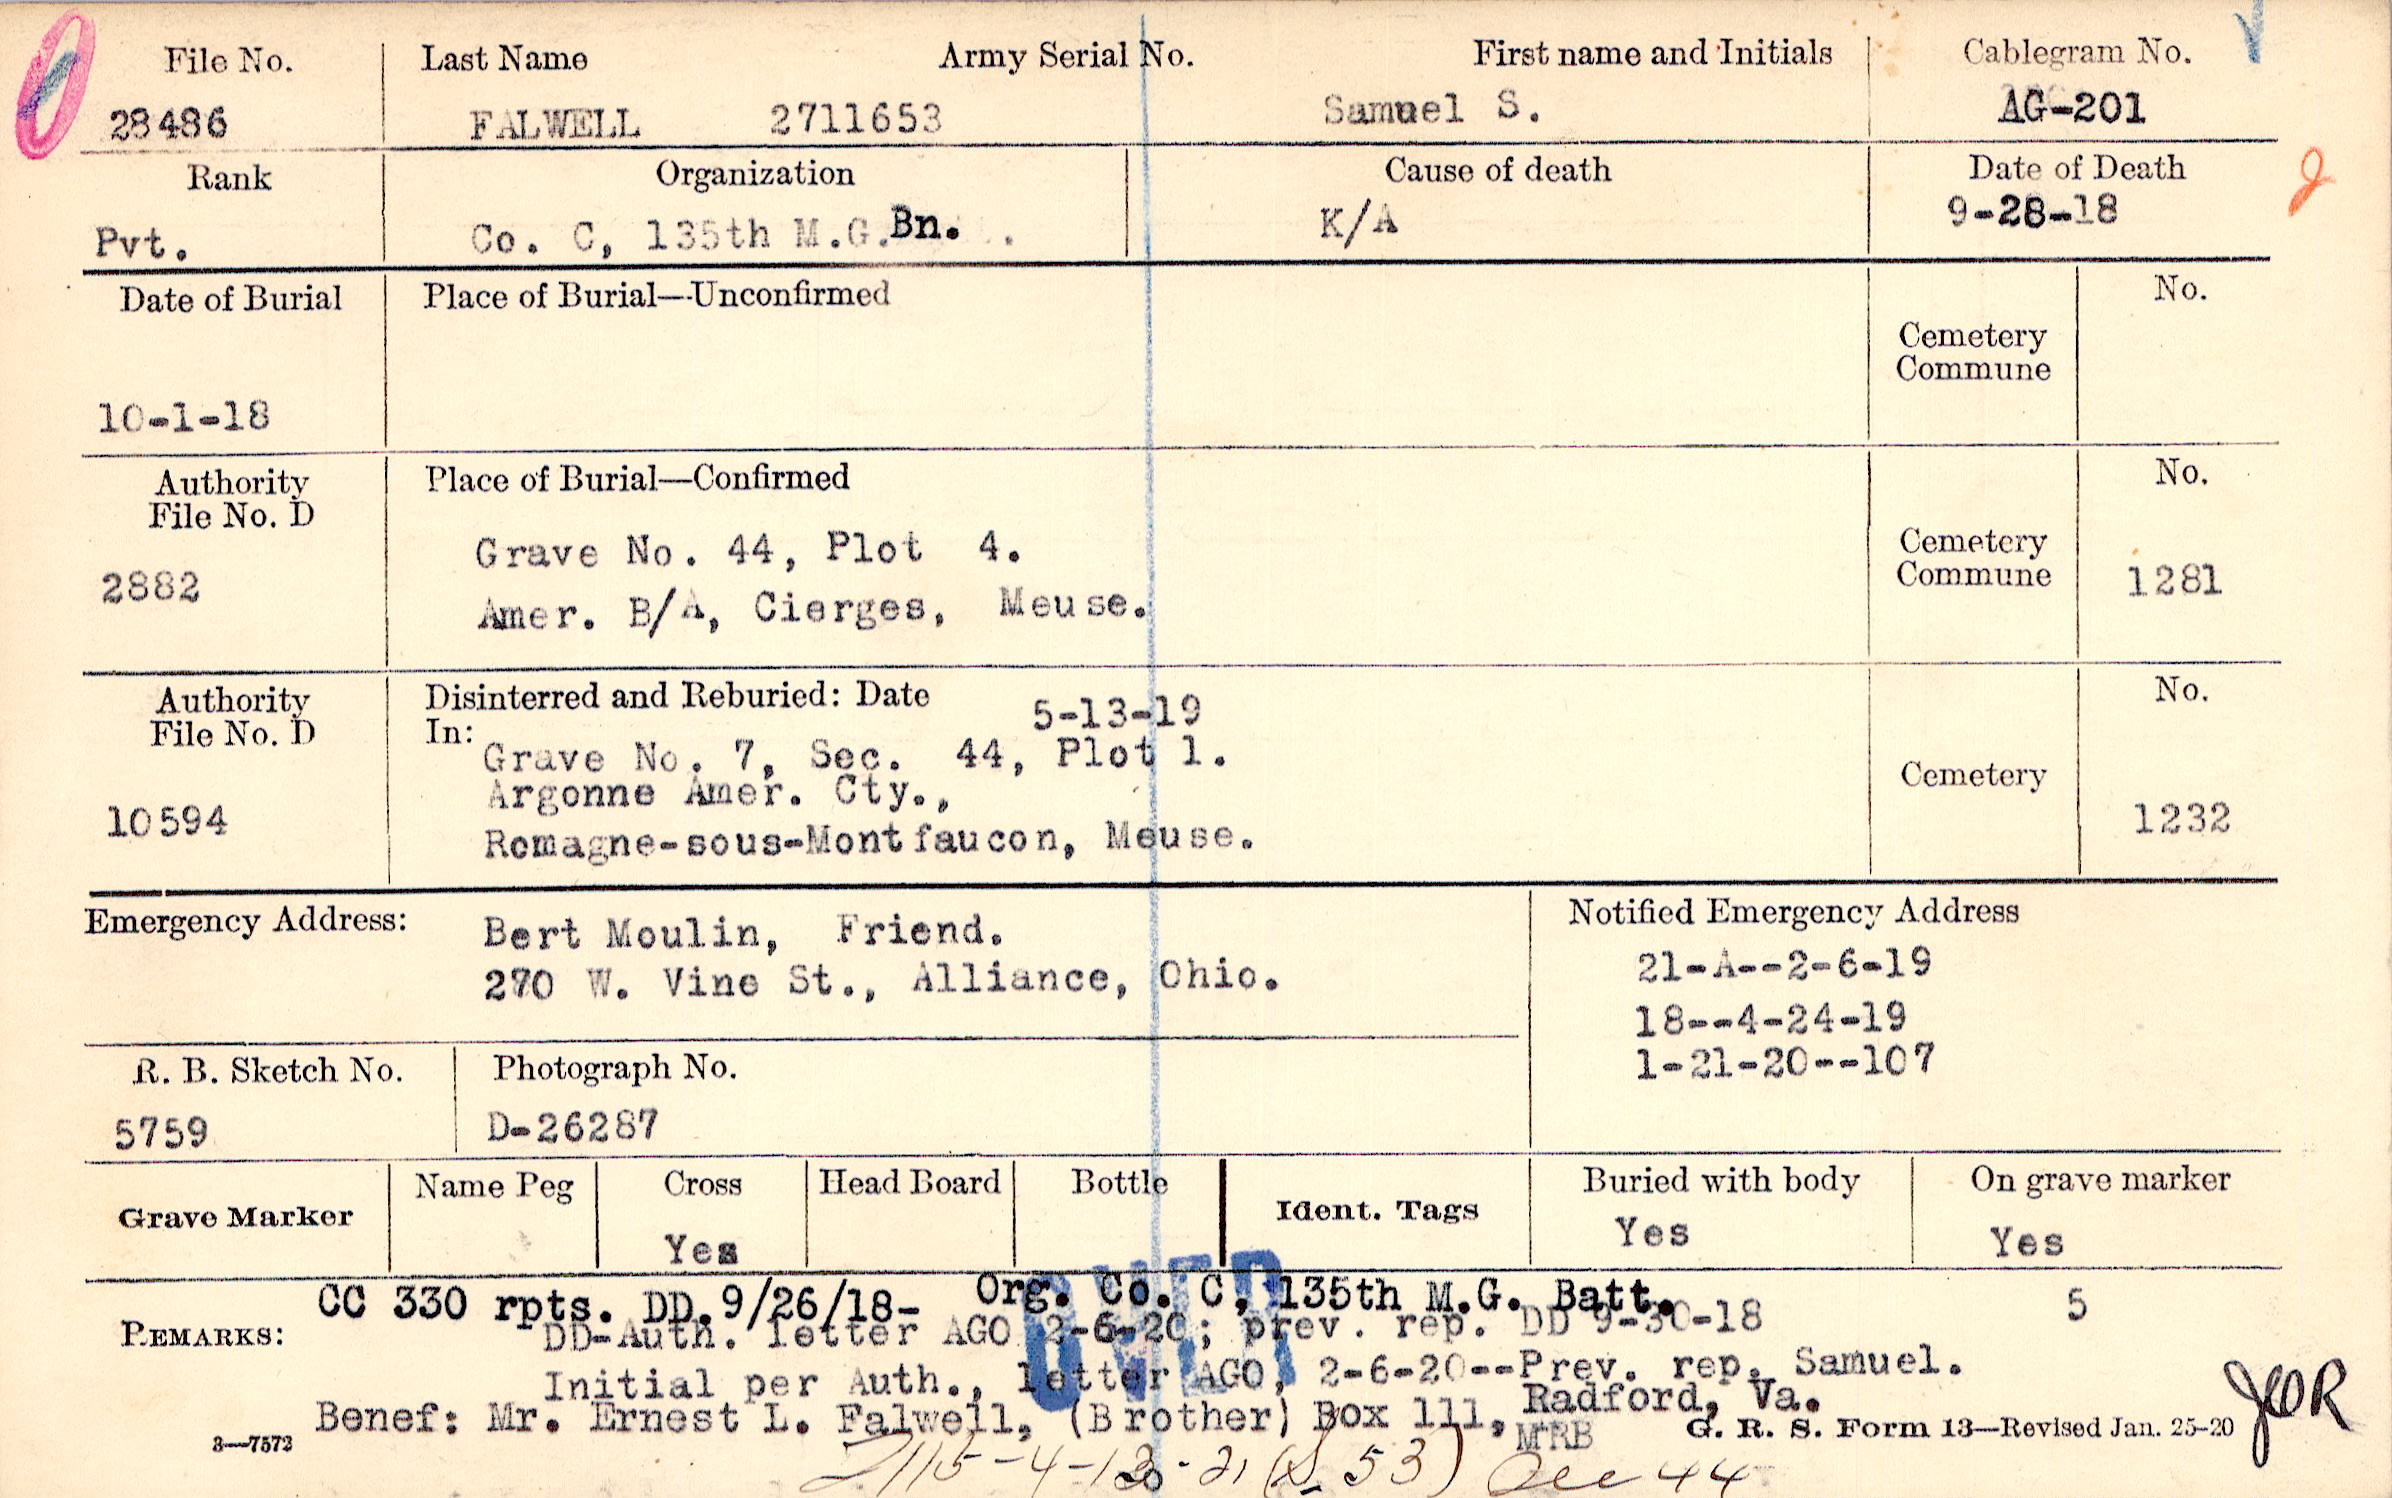 File No. Last Name Army Serial No. First name and Initials Cablegram No.
28486 FALWELL 2711653 Samuel S. AG-201
Rank Organization Cause of death Date of Death
Pvt. Co. C, 135th M.G. Bn. K/A 9-28-18
Date of Burial Place of Burial—Unconfirmed No.
Cemetery
Commune
10-1-18
Authority Place of Burial—Confirmed No.
File No. D
Grave No. 44, Plot 4. Cemetery
2882 Commune 1281
Amer. B/A, Cierges, Meuse.
Authority Disinterred and Reburied: Date 5-13-19 No.
File No. D In:
Grave No. 7, Sec. 44, Plot 1.
Argonne Amer. Cty., Cemetery
10594 Romagne-sous-Montfaucon, Meuse. 1232
Emergency Address: Bert Moulin, Friend. Notified Emergency Address
270 W. Vine St., Alliance, Ohio. 21-A--2-6-19
18--4-24-19
R. B. Sketch No. Photograph No. 1-21-20--107
5759 D-26287
Grave Marker Name Peg Cross Head Board Bottle Ident. Tags Buried with body On grave marker
Yes Yes Yes
CC 330 rpts. DD.9/26/18- Org. Co. C, 135th M.G. Batt. 5
REMARKS: DD-Auth. letter AGO 2-6-20; prev. rep. DD 9-30-18
Initial per Auth., letter AGO, 2-6-20--Prev. rep. Samuel.
Benef: Mr. Ernest L. Falwell, (Brother) Box 111, Radford, Va.
3—7572 MRB G. R. S. Form 13—Revised Jan. 25-20
JOR